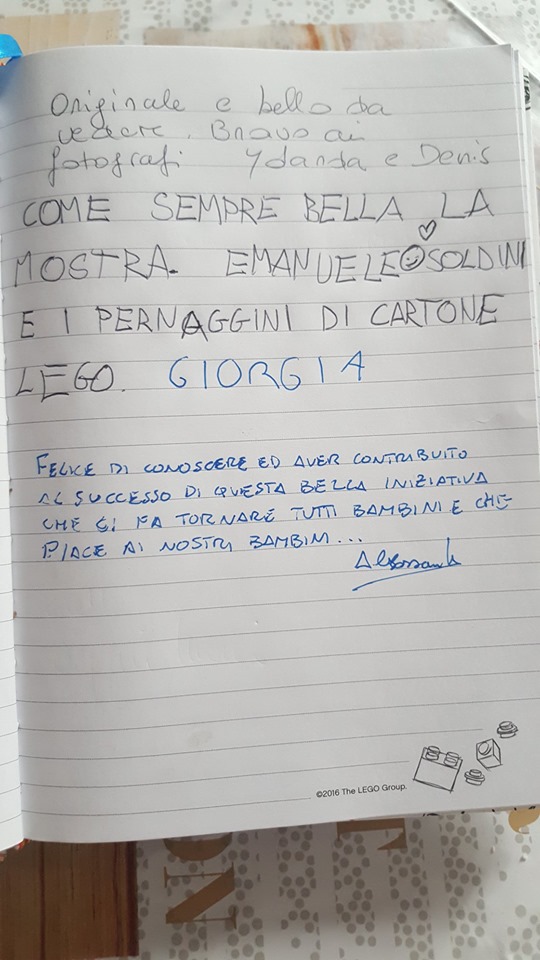 Originale e bello da
vedere. Bravo ai
fotografi Ydanda e Denis
COME SEMPRE BELLA LA
MOSTRA. EMANUELE SOLDINI
E I PERNAGGINI DI CARTONE
LEGO. GIORGIA
FELICE DI CONOSCERE ED AVER CONTRIBUITO
AL SUCCESSO DI QUESTA BELLA INIZIATIVA
CHE CI FA TORNARE TUTTI BAMBINI E CHE
PIACE AI NOSTRI BAMBINI...
©2016 The LEGO Group.